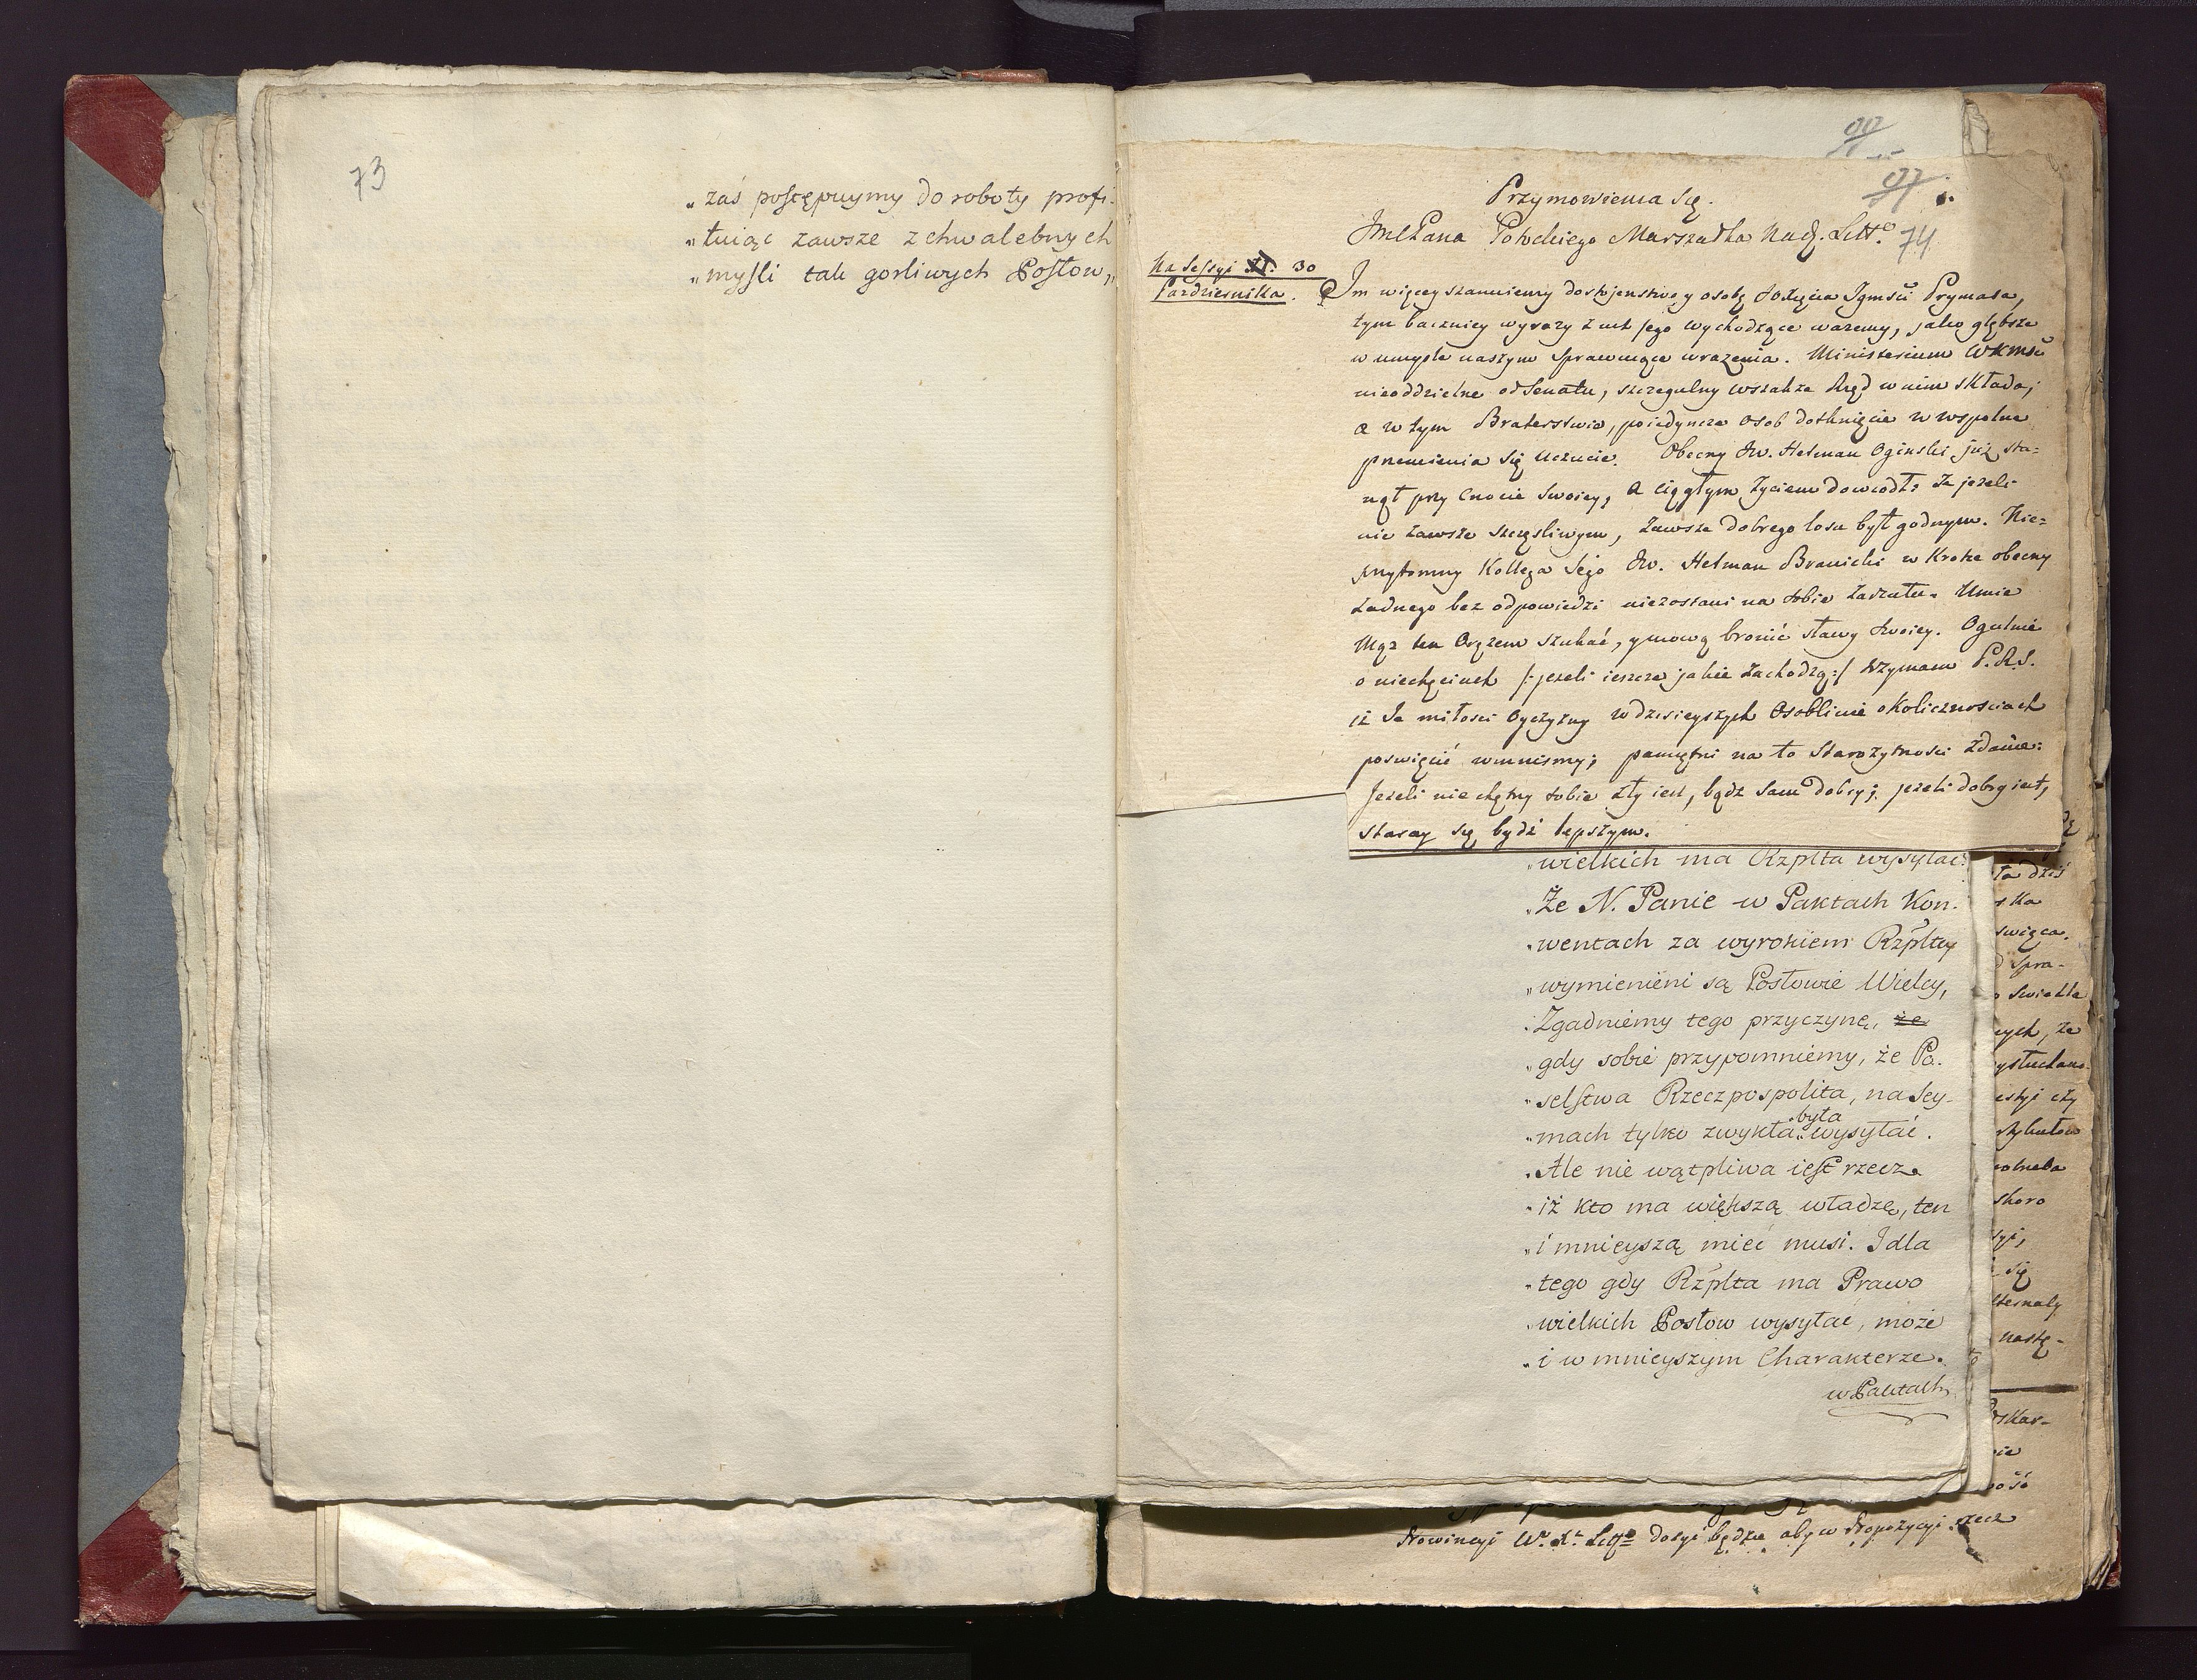 73
„ zaś postępuymy do roboty profi-
„ tuiąc zawsze z chwalebnych
„ mysli tak gorliwych Posłow„
99
97
Przymowienia się.
JmcPana Potockiego Marszałka Nad. Litt.º 74
Na Sessyi XI. 30
Pazdziernika.
Im więcey szanuiemy dostojenstwo y osobę Xcia Jgmści Prymasa,
tym baczniey wyrazy z ust jego wychodzące ważemy, jako głębsze
w umysle naszym sprawuiące wrażenia. Ministerium WKMści
nieoddzielne od Senatu, szczegulny wszakże Rząd w nim składa;
a w tym Braterstwie, poiedyncze osob dotknięcie w wspolne
przemienia się uczucie. Obecny Jw. Hetman Oginski już sta=
nął przy Cnocie swoiey, a ciągłym życiem dowiodł: że jeżeli
nie zawsze szczęsliwym, zawsze dobrego losu był godnym. Nie=
przytomny Kollega Jego Jw. Hetman Branicki w krotce obecny
żadnego bez odpowiedzi niezostawi na sobie zarzutu. Umie
Mąż ten Orężem szukać, y mową bronić sławy swoiey. Ogulnie
o niechęciach /: jeżeli ieszcze jakie zachodzą :/ trzymam P.R.S.
iż Je miłosci Oyczyzny w dzisieyszych osobliwie okolicznosciach
poswięcić winnismy; pamiętni na to Starożytnosci zdanie:
Jeżeli niechętny tobie zły iest, bądz sam dobry; jeżeli dobry iest,
staray się bydź lepszym.
„ wielkich ma Rzplta wysyłać?
„ Że N. Panie w Paktach Kon-
„ wentach za wyrokiem Rzpltey
„ wymienieni są Posłowie Wielcy,
„ Zgadniemy tego przyczynę, że
„ gdy sobie przypomniemy, że Po-
„ selstwa Rzeczpospolita, na Sey-
„ mach tylko zwykła była wysyłać.
„ Ale nie wątpliwa iest rzecz
„ iż kto ma większą władzę, ten
„ i mnieyszą mieć musi. I dla
„ tego gdy Rzplta ma Prawo
„ wielkich Posłow wysyłać, może
„ i w mnieyszym Charakterze.
w Paktach
Prowincyi W. X. Litgo dosyć będzie aby w Propozycyi rzecz